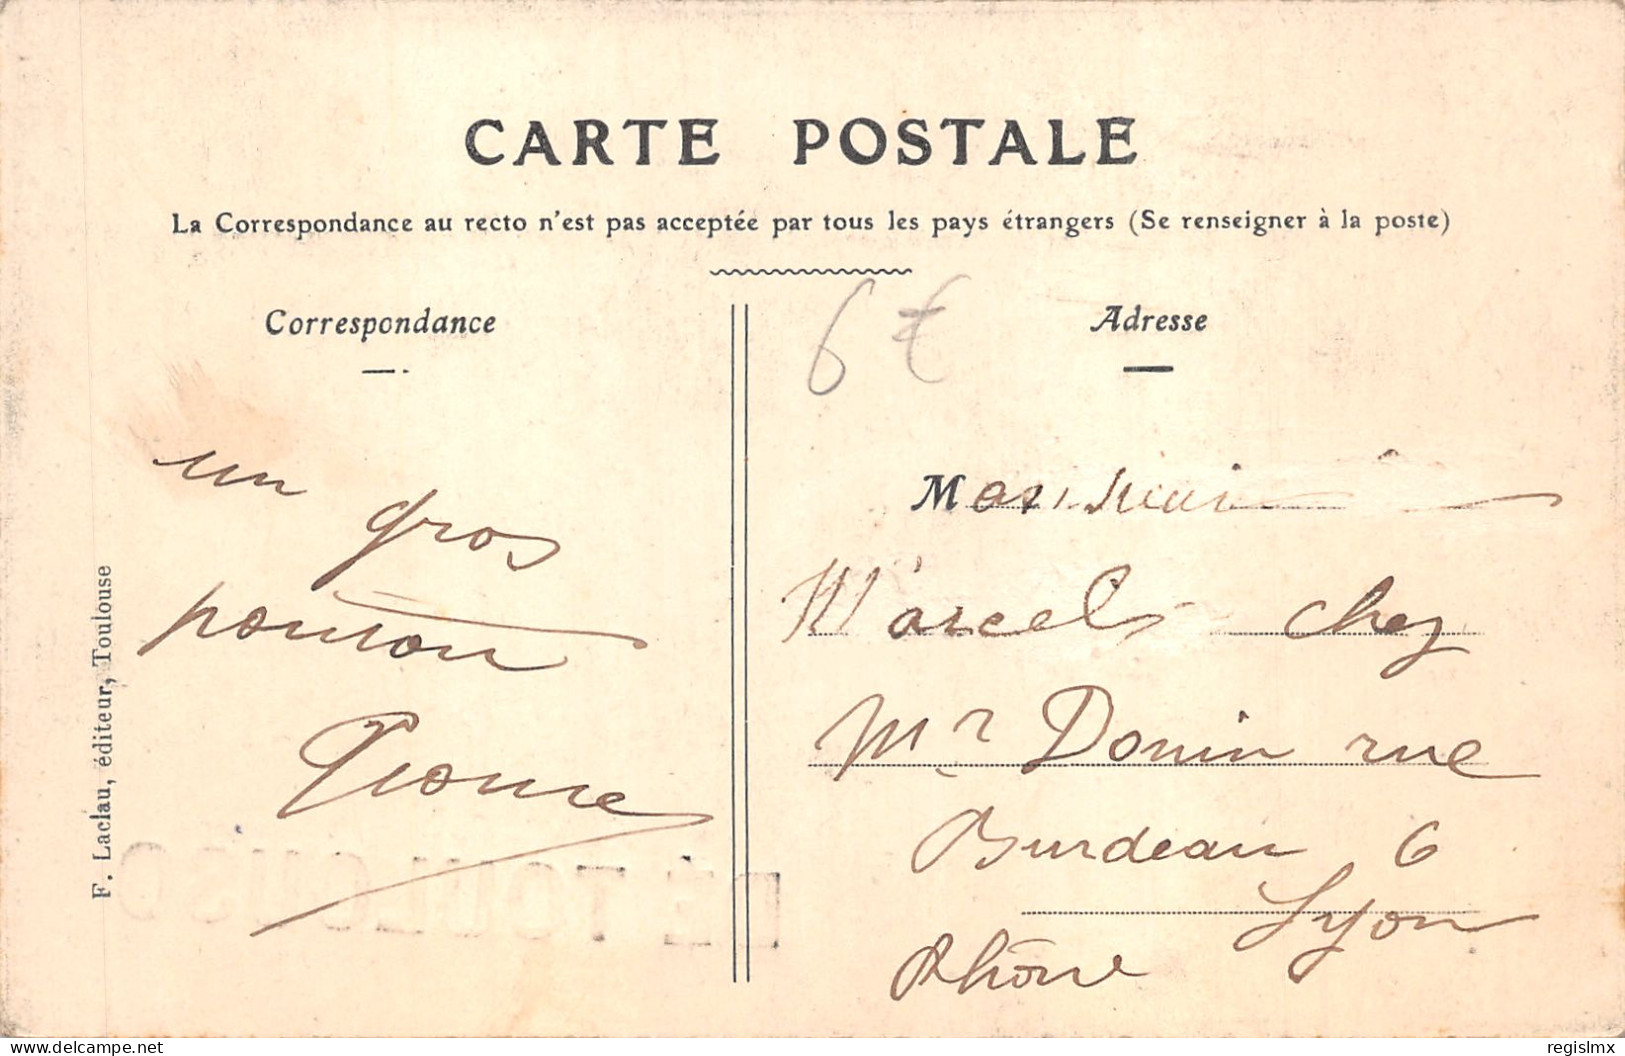 CARTE POSTALE
La Correspondance au recto n'est pas acceptée par tous les pays étrangers (Se renseigner à la poste)
Correspondance
un gros
Adresse
6 €
Monsieur
Marcel chez
Mr Donin rue
Burdeau 6
Lyon
Rhône
F. Laclau, éditeur, Toulouse
www.delcampe.net
regislmx